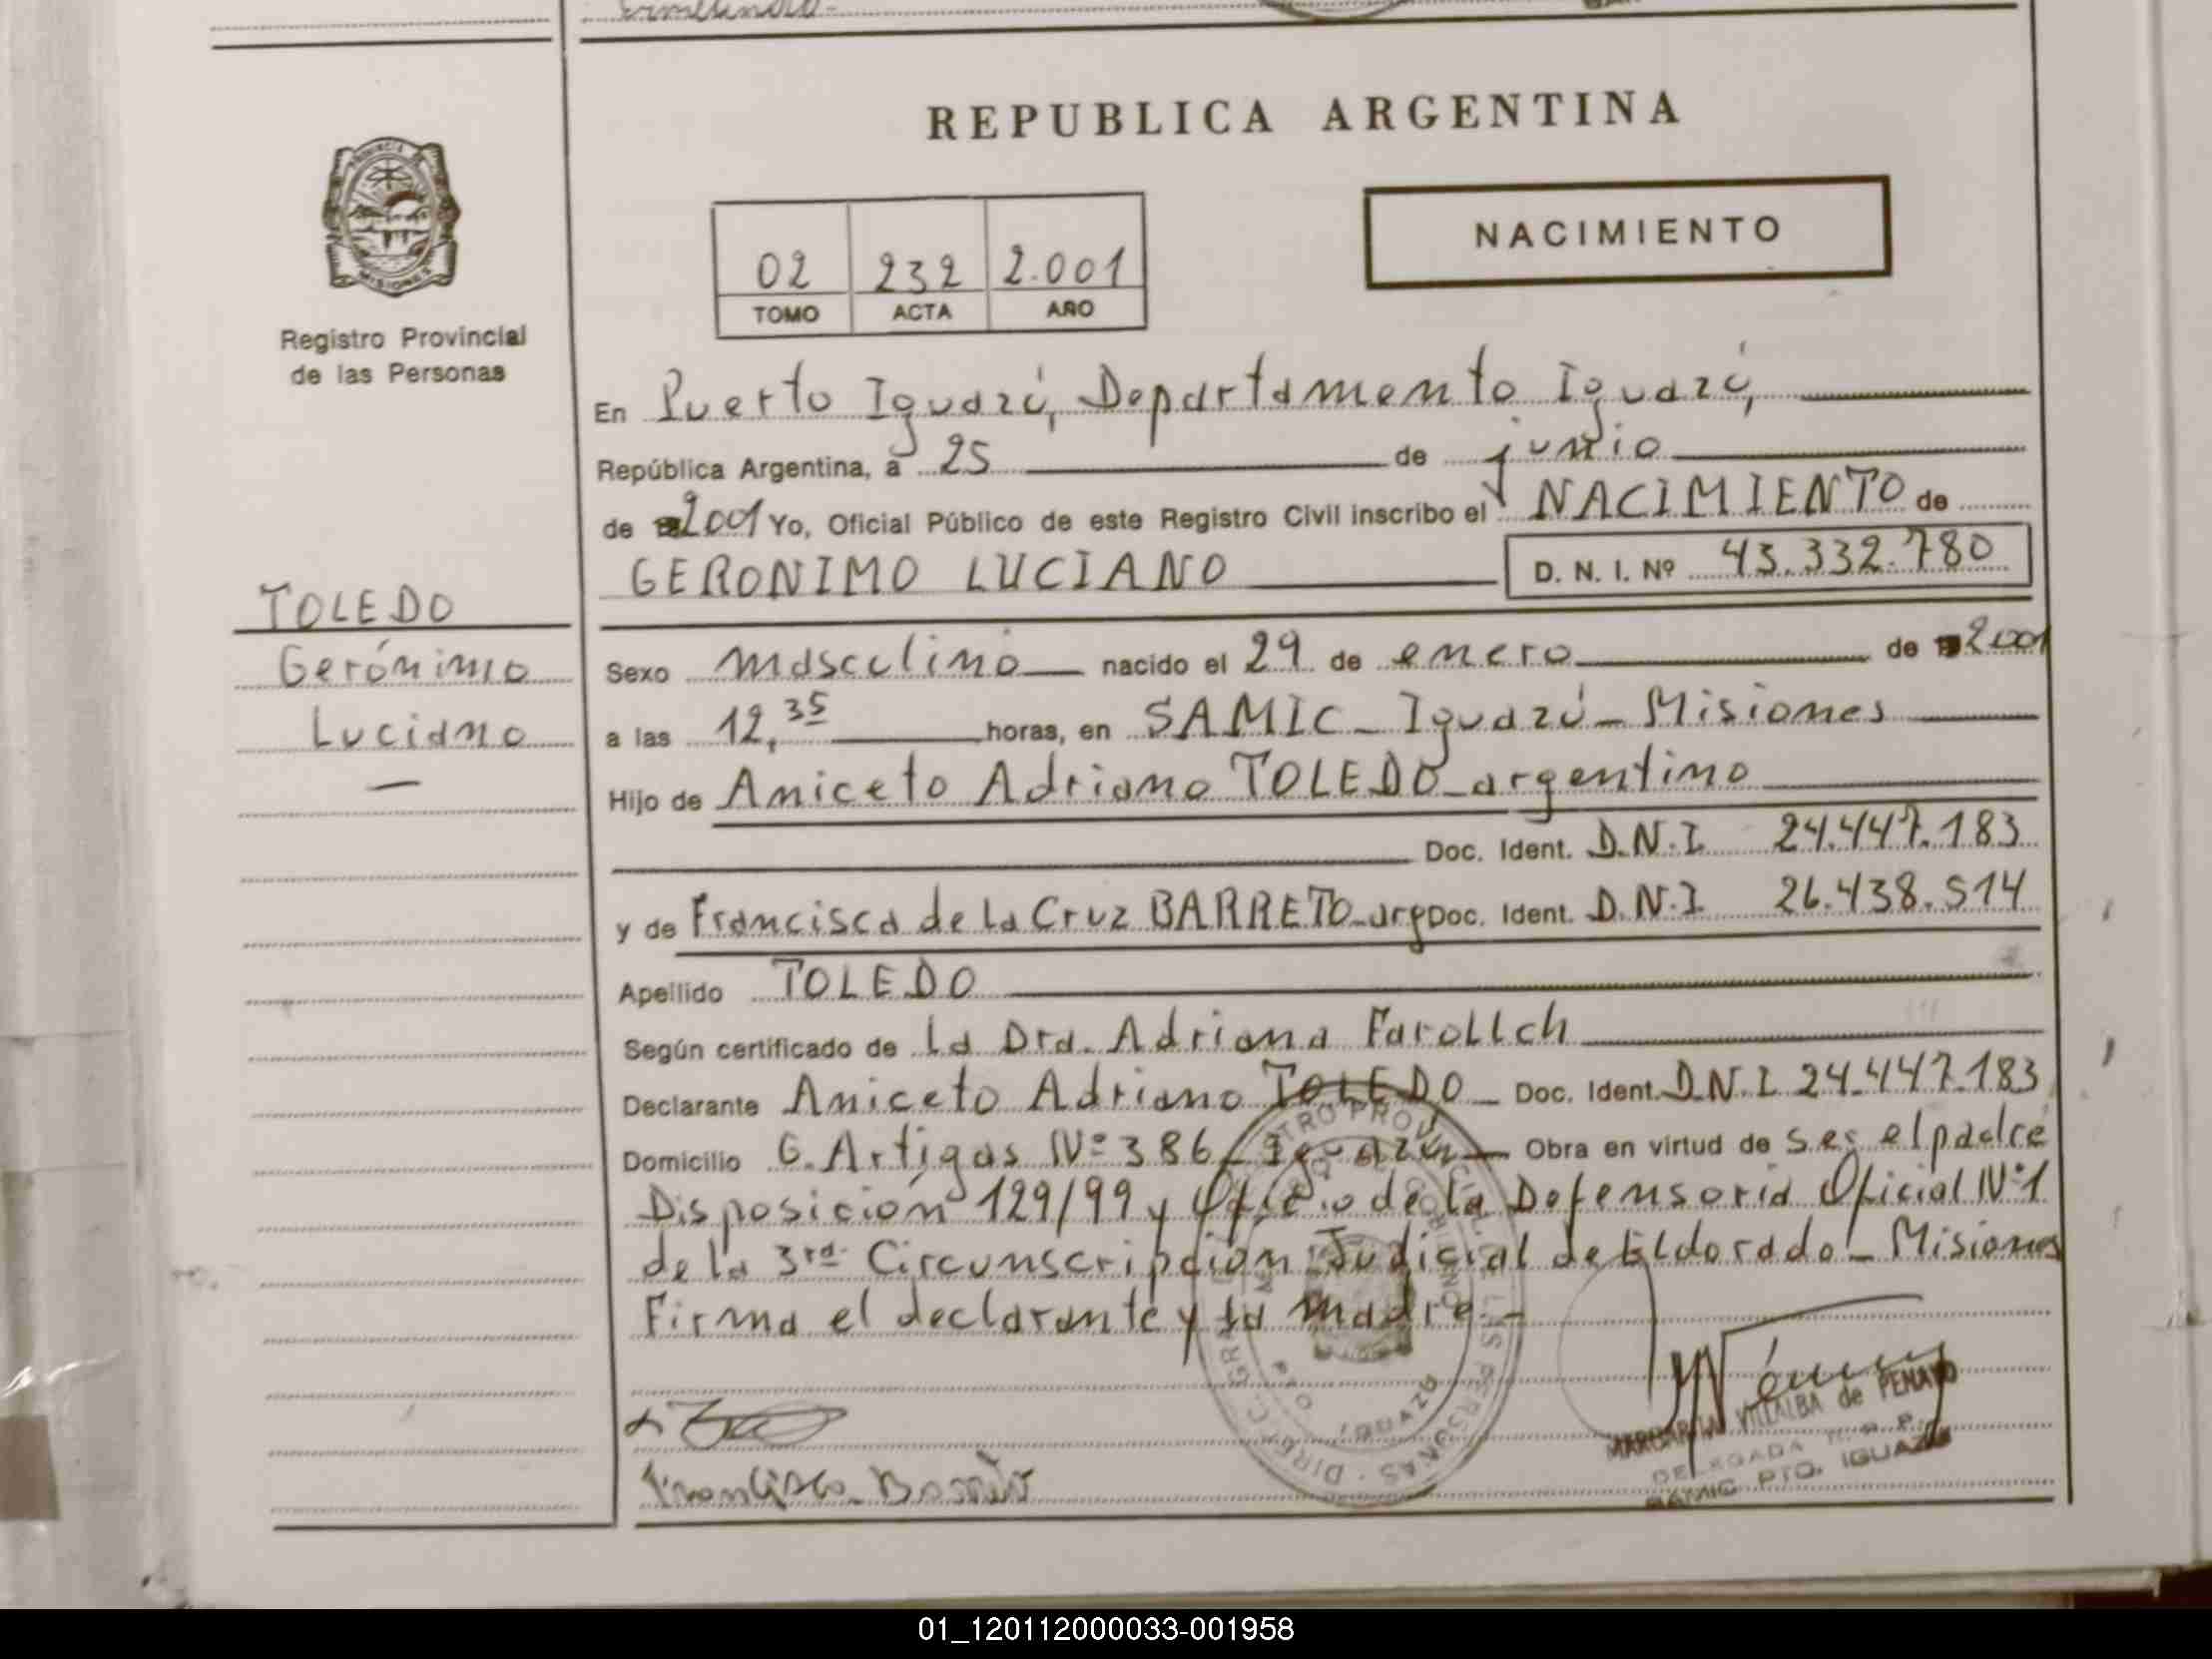 REPUBLICA ARGENTINA
NACIMIENTO
02 232 2.001
TOMO ACTA AÑO
PROVINCIA
MISIONES
Registro Provincial
de las Personas
En Puerto Iguazú, Departamento Iguazú,
República Argentina, a 25 de junio
de 2001 Yo, Oficial Público de este Registro Civil inscribo el NACIMIENTO de
GERONIMO LUCIANO D. N. I. Nº 43.332.780
TOLEDO
Gerónimo
Luciano
Sexo masculino nacido el 29 de enero de 2001
a las 12,35 horas, en SAMIC - Iguazú - Misiones
Hijo de Aniceto Adriano TOLEDO - argentino
Doc. Ident. D.N.I 24.447.183
y de Francisca de la Cruz BARRETO - arg Doc. Ident. D.N.I 26.438.514
Apellido TOLEDO
Según certificado de la Dra. Adriana Farollch
Declarante Aniceto Adriano TOLEDO - Doc. Ident. D.N.I 24.447.183
Domicilio G. Artigas Nº 386 - Iguazú - Obra en virtud de ser el padre
Disposición 129/99 y Oficio de la Defensoria Oficial Nº 1
de la 3ra. Circunscripción Judicial de Eldorado - Misiones
Firma el declarante y la madre. -
MARGARITA VILLALBA de PENAYO
DELEGADA
SAMIC PTO. IGUAZU
01_120112000033-001958